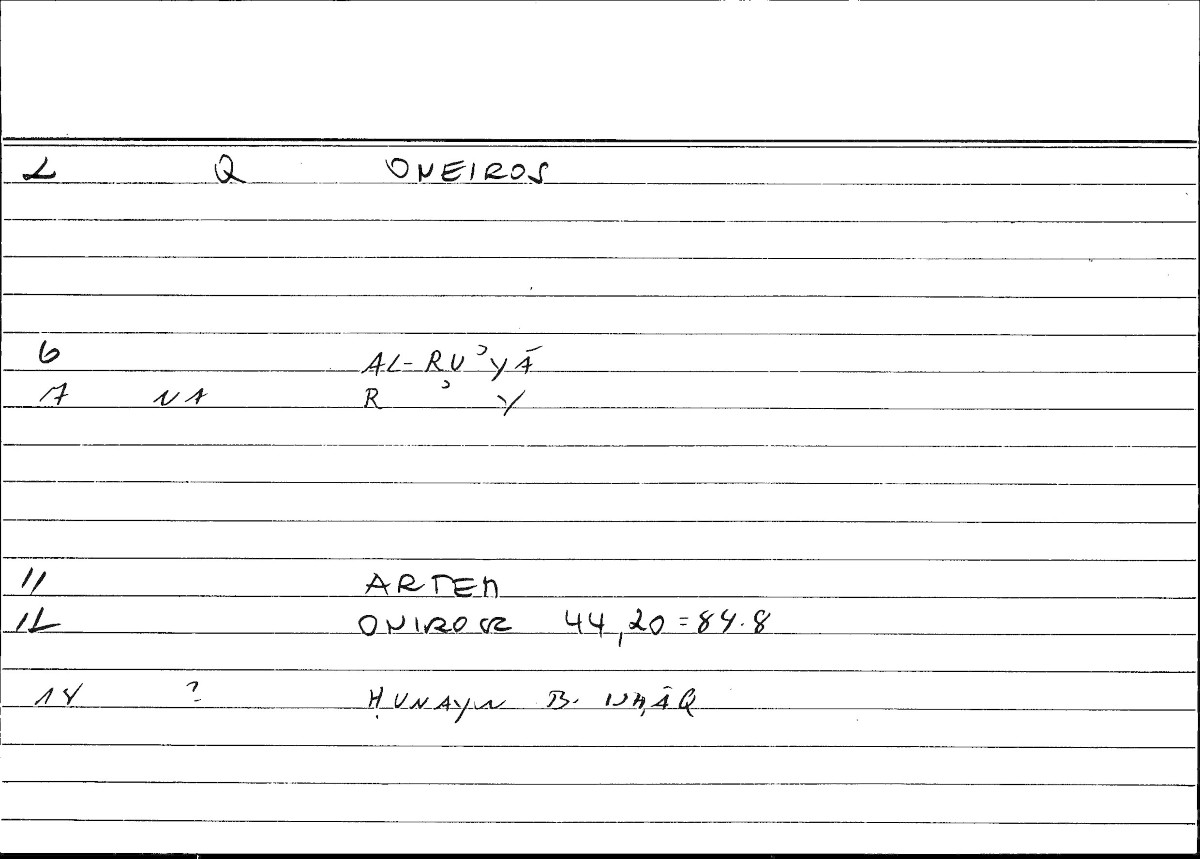 2 Q ONEIROS
6 AL-RUʾYĀ
7 NA R ʾ Y
11 ARTEM
12 ONIROCR 44,20=84.8
14 ? ḤUNAYN B. ISḤĀQ